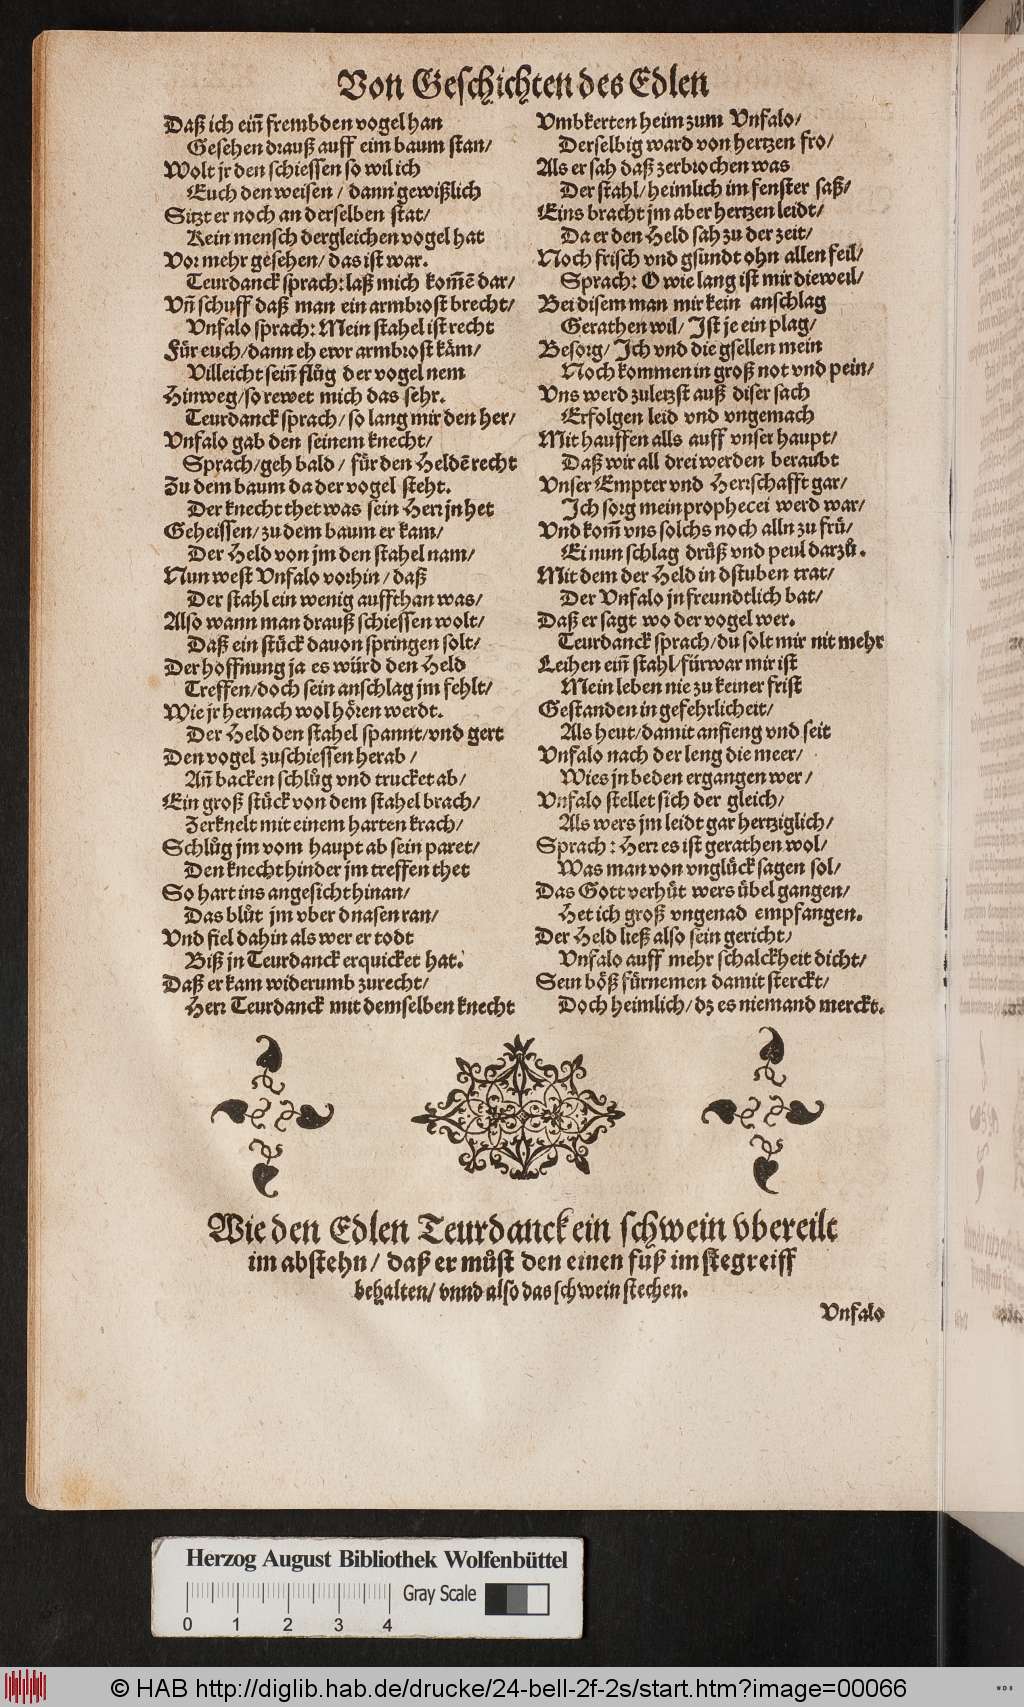 Von Geschichten des Edlen
Daß ich eiñ frembden vogel han
Gesehen drauß auff eim baum stan/
Wolt jr den schiessen so wil ich
Euch den weisen / dann gewißlich
Sitzt er noch an derselben stat/
Kein mensch dergleichen vogel hat
Vor mehr gesehen/ das ist war.
Teurdanck sprach: laß mich kom̃ẽ dar/
Vñ schuff daß man ein armbrost brecht/
Vnfalo sprach: Mein stahel ist recht
Für euch/ dann eh ewr armbrost käm/
Villeicht seiñ flůg der vogel nem
Hinweg/ so rewet mich das sehr.
Teurdanck sprach/ so lang mir den her/
Vnfalo gab den seinem knecht/
Sprach/ geh bald / für den Heldẽ recht
Zu dem baum da der vogel steht.
Der knecht thet was sein Herr jn het
Geheissen/ zu dem baum er kam/
Der Held von jm den stahel nam/
Nun west Vnfalo vorhin/ daß
Der stahl ein wenig auffthan was/
Also wann man drauß schiessen wolt/
Daß ein stück dauon springen solt/
Der hoffnung ja es würd den Held
Treffen/ doch sein anschlag jm fehlt/
Wie jr hernach wol hören werdt.
Der Held den stahel spannt/ vnd gert
Den vogel zuschiessen herab /
Añ backen schlůg vnd trucket ab/
Ein groß stück von dem stahel brach/
Zerknelt mit einem harten krach/
Schlůg jm vom haupt ab sein paret/
Den knecht hinder jm treffen thet
So hart ins angesicht hinan/
Das blůt jm vber dnasen ran/
Vnd fiel dahin als wer er todt
Biß jn Teurdanck erquicket hat.
Daß er kam widerumb zurecht/
Herr Teurdanck mit demselben knecht
Vmbkerten heim zum Vnfalo/
Derselbig ward von hertzen fro/
Als er sah daß zerbrochen was
Der stahl/ heimlich im fenster saß/
Eins bracht jm aber hertzen leidt/
Da er den Held sah zu der zeit/
Noch frisch vnd gsundt ohn allen feil/
Sprach: O wie lang ist mir dieweil/
Bei disem man mir kein anschlag
Gerathen wil/ Ist je ein plag/
Besorg/ Ich vnd die gsellen mein
Noch kommen in groß not vnd pein/
Vns werd zuletzst auß diser sach
Erfolgen leid vnd vngemach
Mit hauffen alls auff vnser haupt/
Daß wir all drei werden beraubt
Vnser Empter vnd Herrschafft gar/
Ich sorg mein prophecei werd war/
Vnd kom̃ vns solchs noch alln zu frü/
Ei nun schlag drüß vnd peul darzů.
Mit dem der Held in dstuben trat/
Der Vnfalo jn freundtlich bat/
Daß er sagt wo der vogel wer.
Teurdanck sprach/ du solt mir nit mehr
Leihen eiñ stahl/ fürwar mir ist
Mein leben nie zu keiner frist
Gestanden in gefehrlicheit/
Als heut/ damit anfieng vnd seit
Vnfalo nach der leng die meer/
Wies jn beden ergangen wer /
Vnfalo stellet sich der gleich/
Als wers jm leidt gar hertziglich/
Sprach : Herr es ist gerathen wol/
Was man von vnglück sagen sol/
Das Gott verhüt wers übel gangen/
Het ich groß vngenad empfangen.
Der Held ließ also sein gericht/
Vnfalo auff mehr schalckheit dicht/
Sein böß fürnemen damit sterckt/
Doch heimlich/ dz es niemand merckt.
Wie den Edlen Teurdanck ein schwein vbereilt
im abstehn/ daß er můst den einen fůß im stegreiff
behalten/ vnnd also das schwein stechen.
Vnfalo
Herzog August Bibliothek Wolfenbüttel
Gray Scale
0 1 2 3 4
© HAB http://diglib.hab.de/drucke/24-bell-2f-2s/start.htm?image=00066